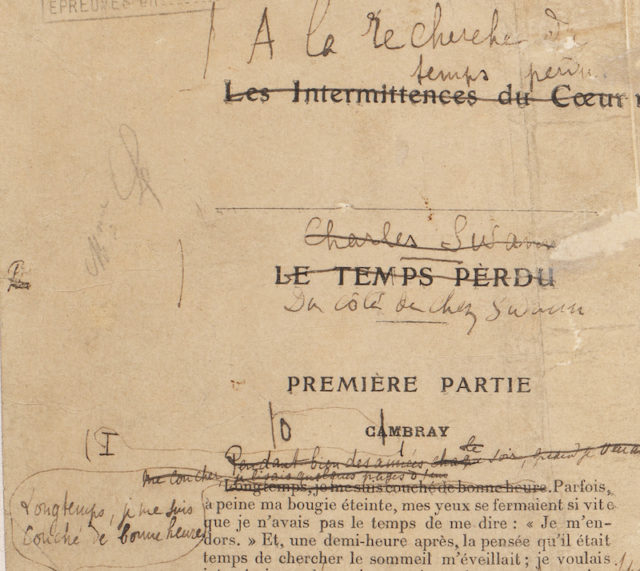 ÉPREUVES
A la recherche du
temps perdu
Les Intermittences du Cœur
Charles Swann
LE TEMPS PÈRDU
Du côté de chez Swann
PREMIÈRE PARTIE
I
CAMBRAY
Pendant bien des années, chaque soir, quand je venais
me coucher, je lisais quelques pages
Longtemps, je me suis couché de bonne heure. Parfois,
Longtemps, je me suis
couché de bonne heure
à peine ma bougie éteinte, mes yeux se fermaient si vite
que je n'avais pas le temps de me dire : « Je m'en-
dors. » Et, une demi-heure après, la pensée qu'il était
temps de chercher le sommeil m'éveillait ; je voulais